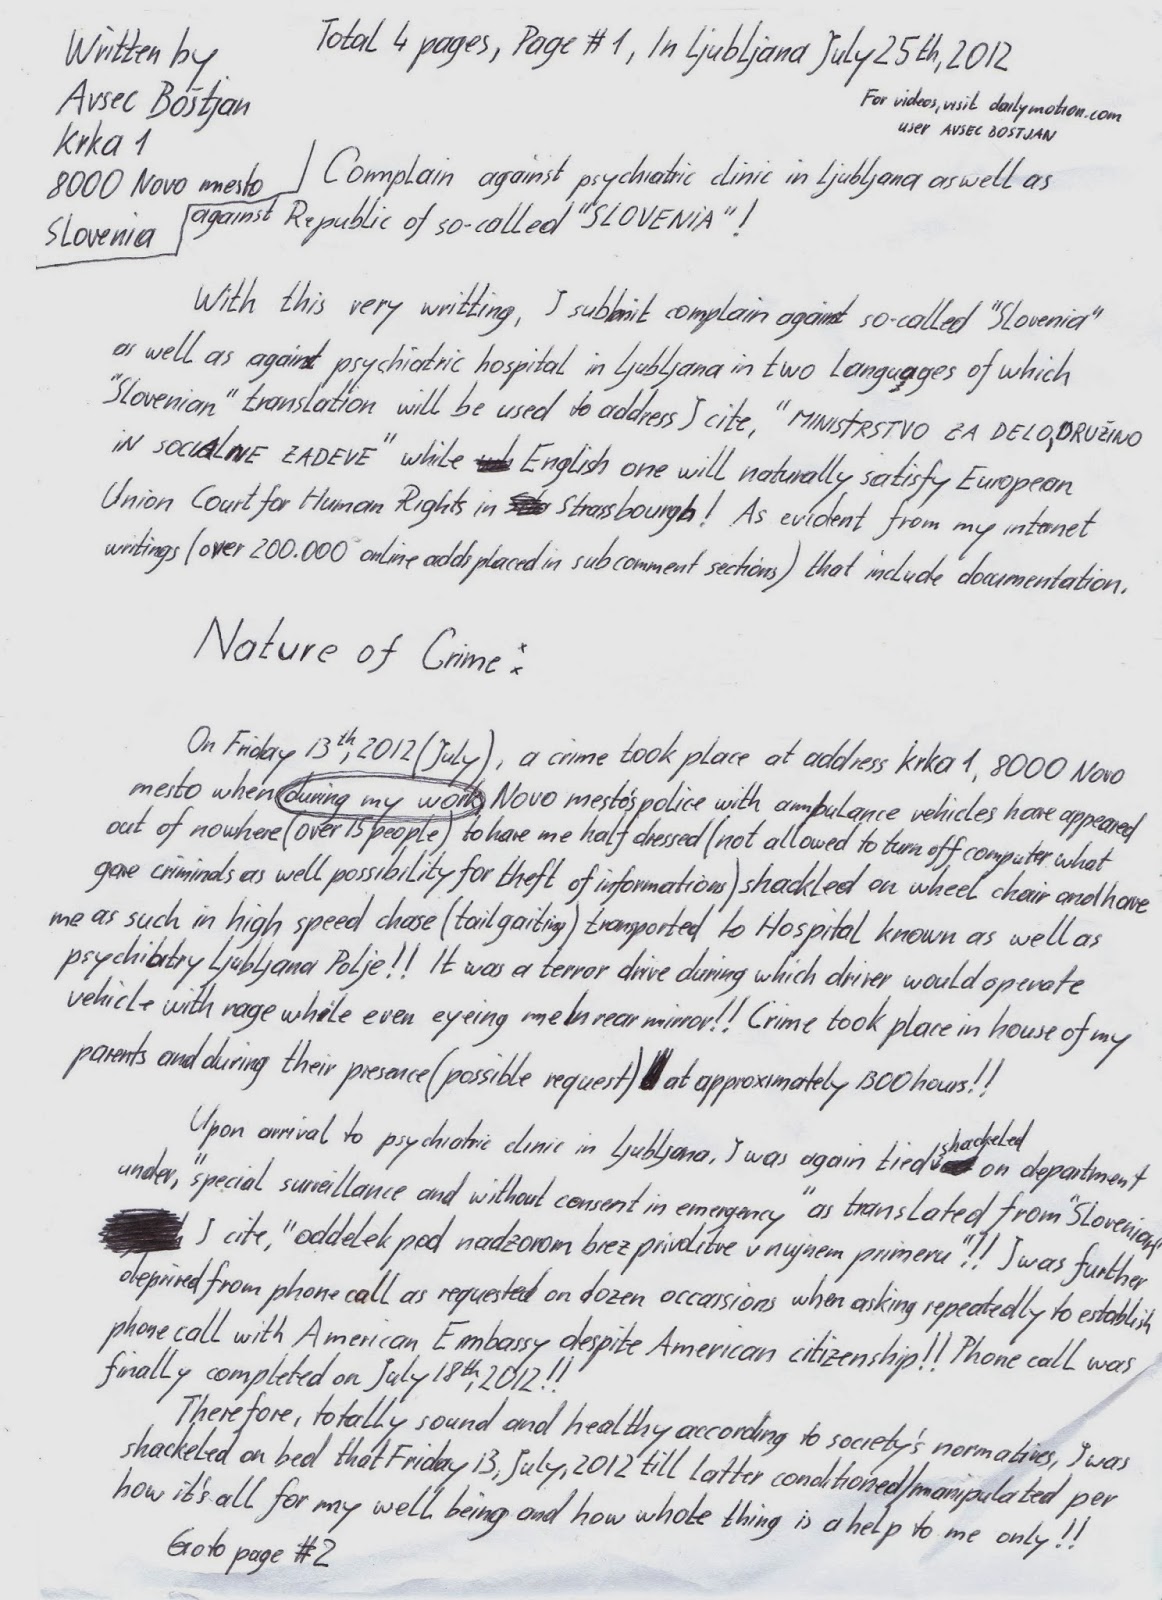 Written by
Total 4 pages, Page #1, In Ljubljana July 25th, 2012
Avsec Boštjan
For videos, visit dailymotion.com
user AVSEC BOSTJAN
Krka 1
8000 Novo mesto
Slovenia
Commplain against psychiatric clinic in Ljubljana as well as
against Republic of so-called "SLOVENIA"!
With this very writting, I submit complain against so-called "Slovenia"
as well as against psychiatric hospital in Ljubljana in two languages of which
"Slovenian" translation will be used to address I cite, "MINISTRSTVO ZA DELO, DRUŽINO
IN SOCIALNE ZADEVE" while English one will naturally satisfy European
Union Court for Human Rights in Strassbourgh! As evident from my intenet
writings (over 200.000 online adds placed in subcomment sections) that include documentation.
Nature of Crime:
On Friday 13th, 2012 (July), a crime took place at address Krka 1, 8000 Novo
mesto when during my work, Novo mesto's police with ambulance vehicles have appeared
out of nowhere (over 15 people) to have me half dressed (not allowed to turn off computer what
gave criminals as well possibility for theft of informations) shackled on wheel chair and have
me as such in high speed chase (tailgaiting) transported to Hospital known as well as
psychiatry Ljubljana Polje!! It was a terror drive during which driver would operate
vehicle with rage while even eyeing me in rear mirror!! Crime took place in house of my
parents and during their presence (possible request) at approximately 1300 hours!!
Upon arrival to psychiatric clinic in Ljubljana, I was again tied shackeled on department
under, "special surveillance and without consent in emergency" as translated from "Slovenian"
I cite, "oddelek pod nadzorom brez privolitve v nujnem primeru"!! I was further
deprived from phone call as requested on dozen occassions when asking repeatedly to establish
phone call with American Embassy despite American citizenship!! Phone call was
finally completed on July 18th, 2012!!
Therefore, totally sound and healthy according to society's normatives, I was
shackeled on bed that Friday 13, July, 2012 till latter conditioned/manipulated per
how it's all for my well being and how whole thing is a help to me only!!
Go to page #2